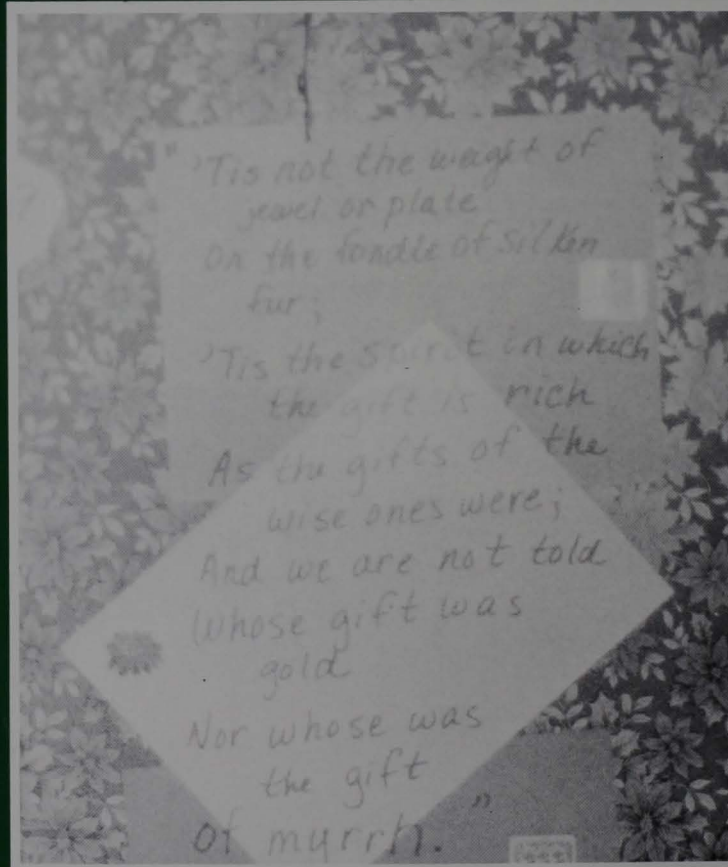 " 'Tis not the weight of
jewel or plate
On the fondle of silken
fur;
'Tis the spirit in which
the gift is rich
As the gifts of the
wise ones were;
And we are not told
Whose gift was
gold
Nor whose was
the gift
of myrrh. "